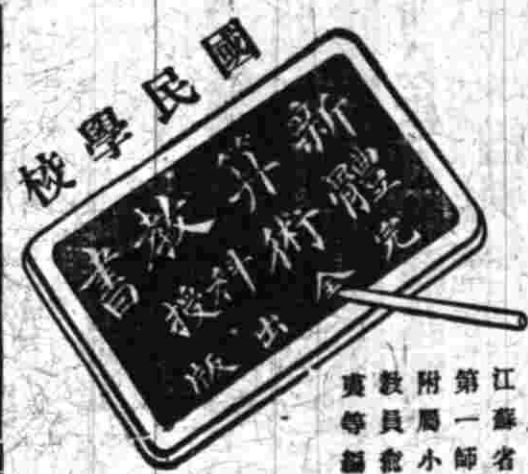 國民學校
新體
算術
教
科授
書
完全出版
江蘇省
第一師
附屬小
教員
等編